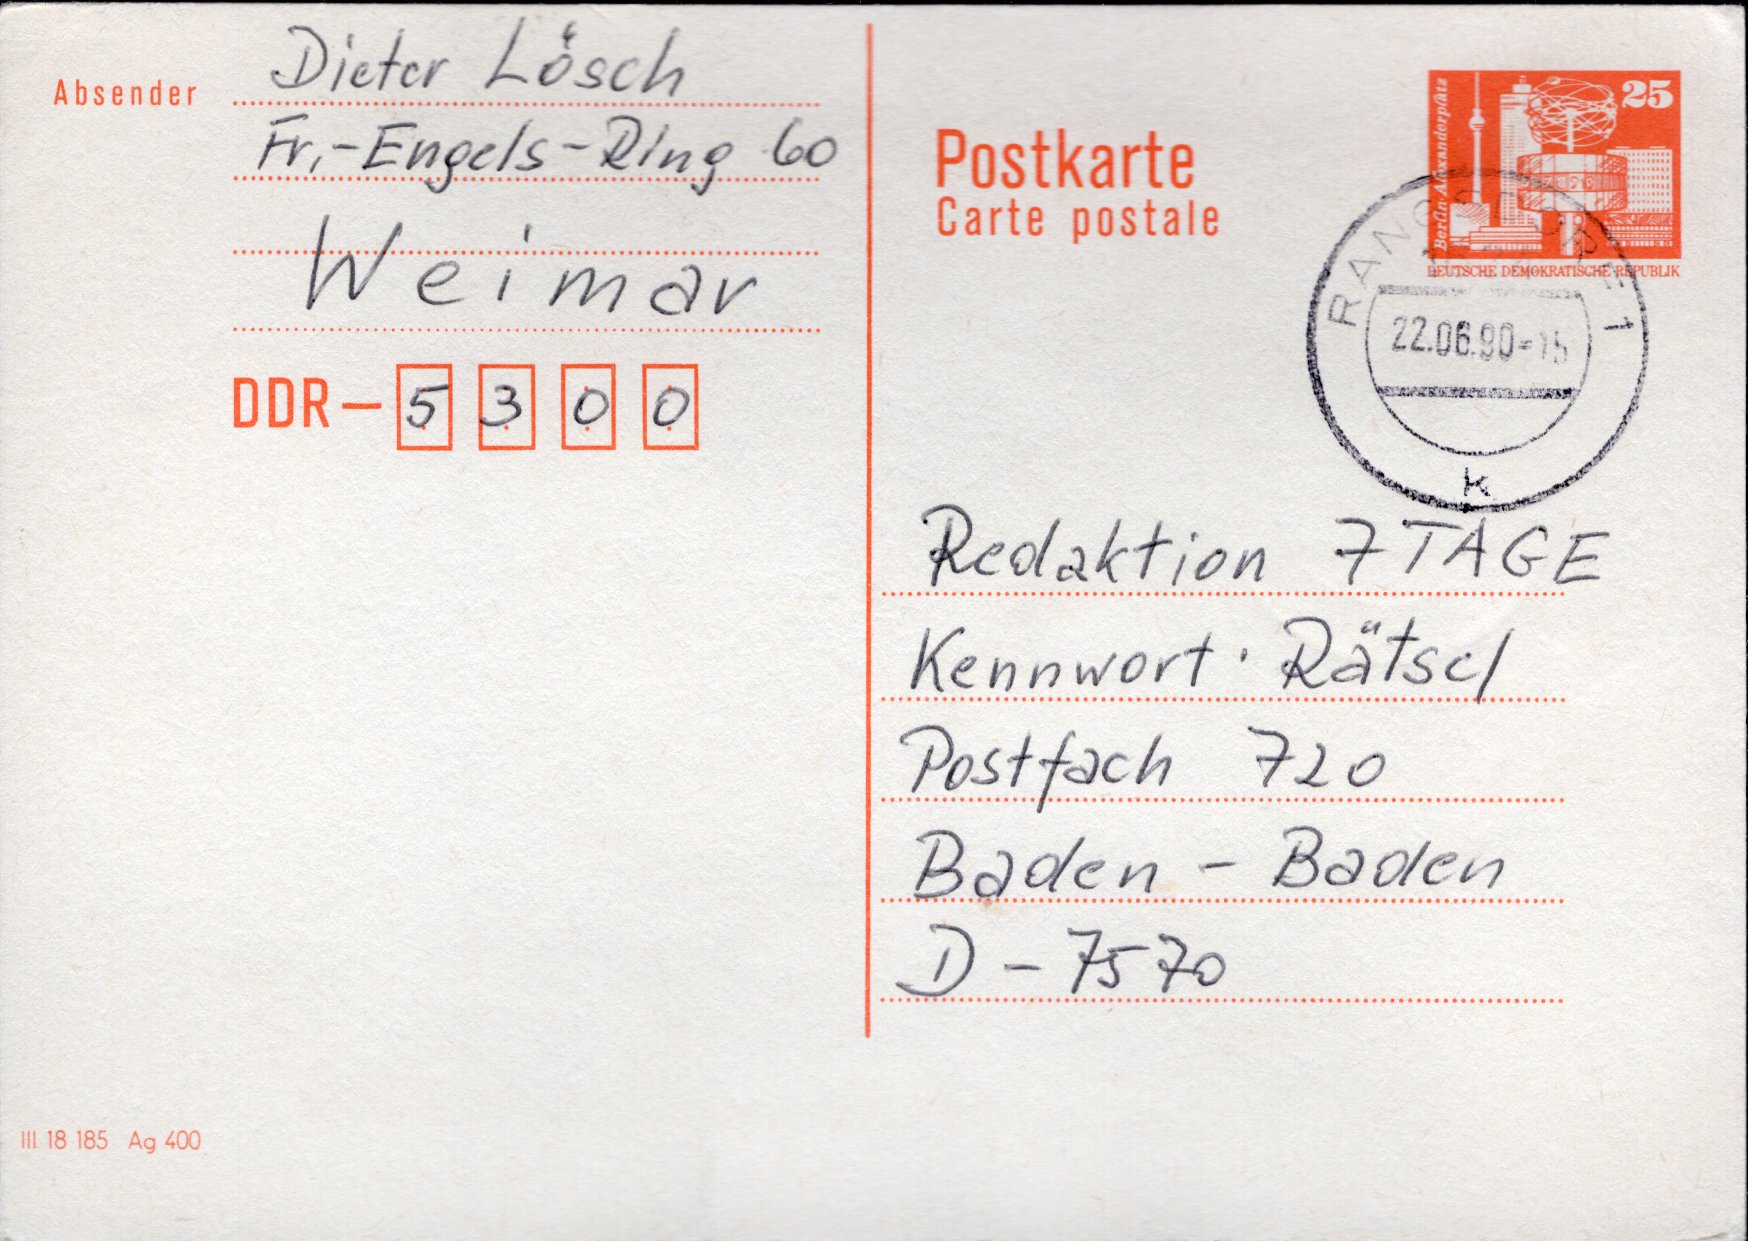 Absender
Dieter Lösch
Fr.-Engels-Ring 60
Weimar
DDR–5300
Postkarte
Carte postale
25
Berlin-Alexanderplatz
DEUTSCHE DEMOKRATISCHE REPUBLIK
1
22.06.90-15
k
Redaktion 7 TAGE
Kennwort · Rätsel
Postfach 720
Baden - Baden
D - 7570
III 18 185 Ag 400